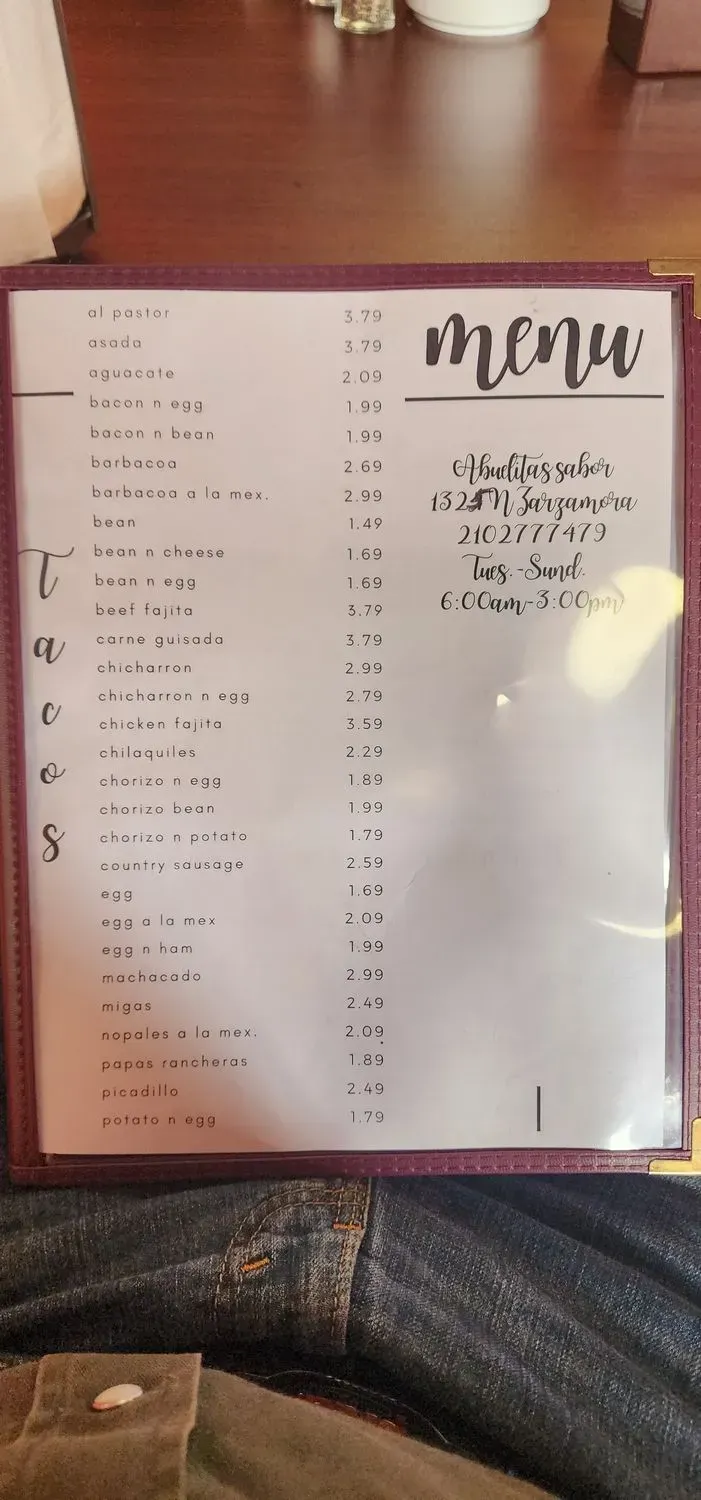 al pastor 3.79
asada 3.79
aguacate 2.09
bacon n egg 1.99
bacon n bean 1.99
barbacoa 2.69
barbacoa a la mex. 2.99
bean 1.49
bean n cheese 1.69
bean n egg 1.69
beef fajita 3.79
carne guisada 3.79
chicharron 2.99
chicharron n egg 2.79
chicken fajita 3.59
chilaquiles 2.29
chorizo n egg 1.89
chorizo bean 1.99
chorizo n potato 1.79
country sausage 2.59
egg 1.69
egg a la mex 2.09
egg n ham 1.99
machacado 2.99
migas 2.49
nopales a la mex. 2.09
papas rancheras 1.89
picadillo 2.49
potato n egg 1.79
Tacos
menu
Abuelitas sabor
N Zarzamora
2102777479
Tues.-Sund.
6:00am-3:00pm